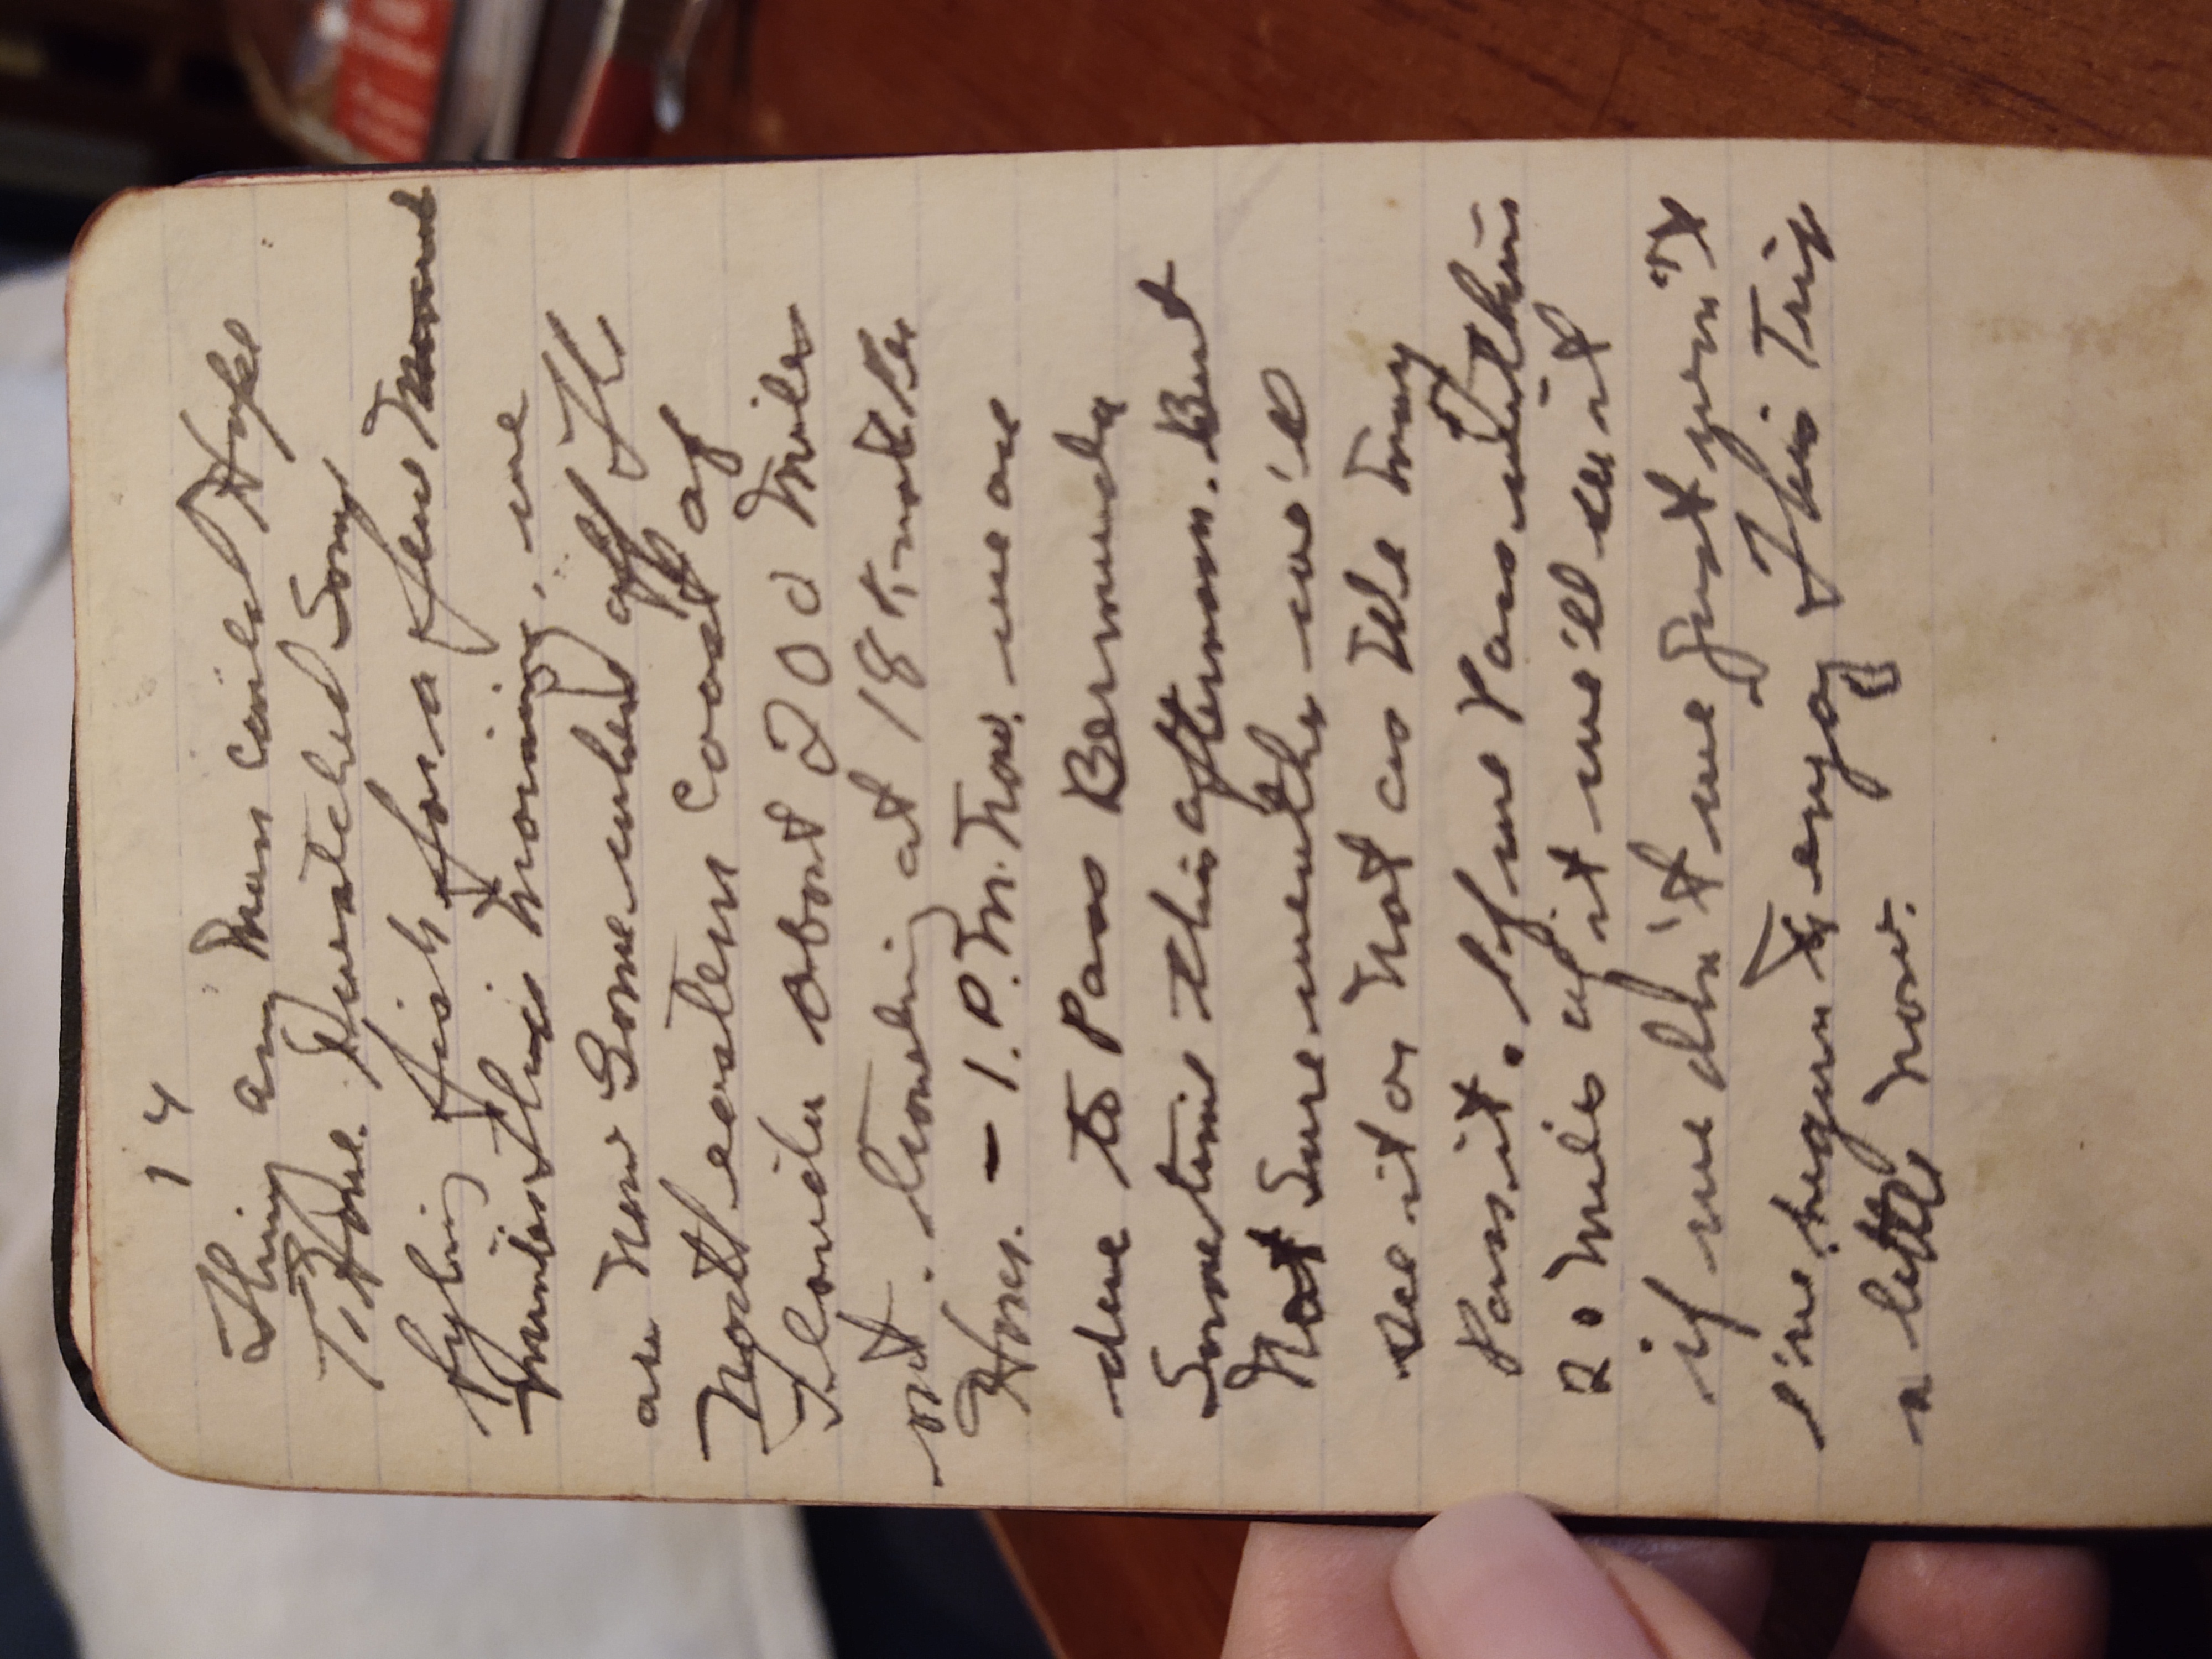 14
Thing any man could Hope
To Have. Watched Some
flying fish for a few
minutes this morning. we
are now Somewhere off the
North eastern coast of
Florida about 200 miles
out. Traveling at 18 knots Per
Hour. - 1. P.M. Now. we are
due to Pass Bermuda
Sometime this afternoon. But
Not Sure wether we'll
see it or not as We may
Pass it. If we Pass within
20 miles of it we'll see it
if we don't we just won't
I've begun to enjoy This Trip
a little now.